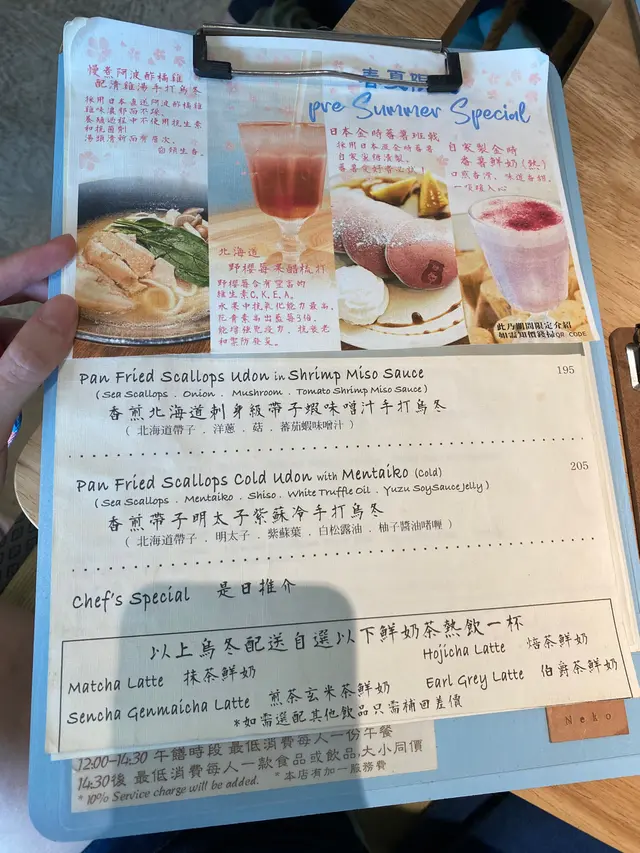 慢煮阿波酢橘雞
配清雞湯手打烏冬
採用日本直送阿波酢橘雞
雞味濃郁而不燥。
養殖過程中不使用抗生素
和抗菌劑
湯頭清新而有層次。
春夏限
pre Summer Special
日本金時蕃薯班戟
採用日本產金時蕃薯
自家蜜糖漬製。
自家製金時
蕃薯鮮奶(熱)
北海道
野櫻莓果醋梳打
野櫻莓含有豐富的
維生素C.K.E.A。
水果中抗氧化能力最高。
花青素高出藍莓3倍。
能增強免疫力、抗衰老
和幫防發炎。
此乃期間限定介紹
如需知價錢掃QR CODE
Pan Fried Scallops Udon in Shrimp Miso Sauce 195
(Sea Scallops . Onion . Mushroom . Tomato Shrimp Miso Sauce)
香煎北海道刺身級帶子蝦味噌汁手打烏冬
( 北海道帶子 . 洋蔥 . 菇 . 蕃茄蝦味噌汁 )
Pan Fried Scallops Cold Udon with Mentaiko (Cold) 205
(Sea Scallops . Mentaiko . Shiso . White Truffle Oil . Yuzu SoySauce Jelly)
香煎帶子明太子紫蘇冷手打烏冬
( 北海道帶子 . 明太子 . 紫蘇葉 . 白松露油 . 柚子醬油啫喱 )
Chef's Special 是日推介
以上烏冬配送自選以下鮮奶茶熱飲一杯
Matcha Latte 抹茶鮮奶 Hojicha Latte 焙茶鮮奶
Sencha Genmaicha Latte 煎茶玄米茶鮮奶 Earl Grey Latte 伯爵茶鮮奶
*如需選配其他飲品只需補回差價
Neko
12:00-14:30 午膳時段 最低消費每人一份午餐
14:30後 最低消費每人一款食品或飲品,大小同價
* 10% Service charge will be added. * 本店有加一服務費